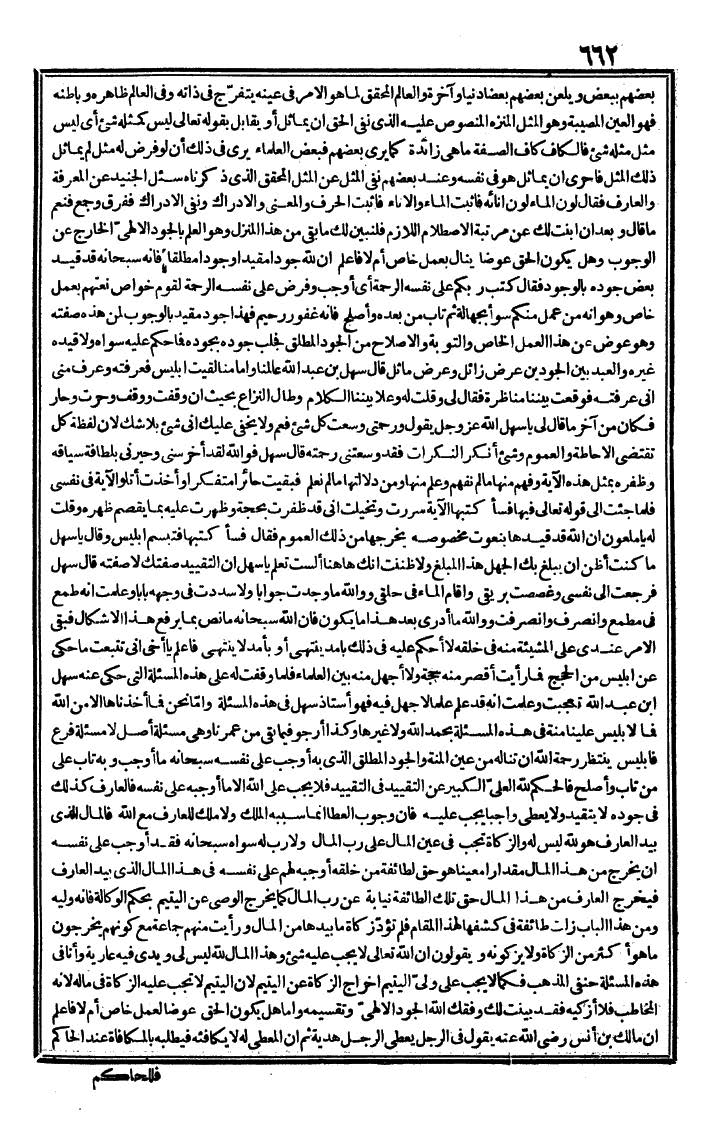 ٦٦٢
بعضهم ببعض ويلعن بعضهم بعضا دنيا وآخرة والعالم المحقق لما هو الامر فى عينه يتفرّج فى ذاته وفى العالم ظاهره وباطنه
فهو العين المصيبة وهو المثل المنزه المنصوص عليه الذى نفى الحق ان يماثل أو يقابل بقوله تعالى ليس كمثله شئ أى ليس
مثل مثله شئ فالكاف كاف الصفة ماهى زائدة كما يرى بعضهم فبعض العلماء يرى فى ذلك أن لو فرض له مثل لم يماثل
ذلك المثل فاحرى ان يماثل هو فى نفسه وعند بعضهم نفى المثل عن المثل المحقق الذى ذكرناه سئل الجنيد عن المعرفة
والعارف فقال لون الماء لون انائه فاثبت الماء والاناء فاثبت الحرف والمعنى والادراك ونفى الادراك ففرق وجمع فنعم
ما قال وبعد ان ابنت لك عن مرتبة الاصطلام اللازم فلنبين لك ما بقى من هذا المنزل وهو العلم بالجود الالهىّ الخارج عن
الوجوب وهل يكون الحق عوضا ينال بعمل خاص أم لا فاعلم ان لله جودا مقيدا وجودا مطلقا فانه سبحانه قد قيد
بعض جوده بالوجود فقال كتب ربكم على نفسه الرحمة أى أوجب وفرض على نفسه الرحمة لقوم خواص نعتهم بعمل
خاص وهو انه من عمل منكم سوأ بجهالة ثم تاب من بعده وأصلح فانه غفور رحيم فهذا جود مقيد بالوجوب لمن هذه صفته
وهو عوض عن هذا العمل الخاص والتوبة والاصلاح من الجود المطلق فجلب جوده بجوده فاحكم عليه سواه ولا قيده
غيره والعبد بين الجودين عرض زائل وعرض مائل قال سهل بن عبد الله عالمنا وامامنا لقيت ابليس فعرفته وعرف منى
انى عرفته فوقعت بيننا مناظرة فقال لى وقلت له وعلا بيننا الكلام وطال النزاع بحيث ان وقفت ووقف وحرت وحار
فكان من آخر ما قال لى يا سهل الله عز وجل يقول ورحمتى وسعت كل شئ فعم ولا يخفى عليك انى شئ بلا شك لان لفظة كل
تقتضى الاحاطة والعموم وشئ أنكر النكرات فقد وسعتنى رحمته قال سهل فوالله لقد أخرسنى وحيرنى بلطافة سياقه
وظفره بمثل هذه الآية وفهم منها ما لم نفهم وعلم منها ومن دلالتها ما لم نعلم فبقيت حائرا متفكرا وأخذت أتلو الآية فى نفسى
فلما جئت الى قوله تعالى فيها فسأكتبها الآية سررت وتخيلت انى قد ظفرت بحجة وظهرت عليه بما يقصم ظهره وقلت
له يا ملعون ان الله قد قيدها بنعوت مخصوصه يخرجها من ذلك العموم فقال فسأكتبها فتبسم ابليس وقال يا سهل
ما كنت أظن ان يبلغ بك الجهل هذا المبلغ ولا ظننت انك هاهنا ألست تعلم يا سهل ان التقييد صفتك لا صفته قال سهل
فرجعت الى نفسى وغصصت بريقى واقام الماء فى حلقى ووالله ما وجدت جوابا ولا سددت فى وجهه بابا وعلمت انه طمع
فى مطمع وانصرف وانصرفت ووالله ما أدرى بعد هذا ما يكون فان الله سبحانه ما نص بما يرفع هذا الاشكال فبقى
الامر عندى على المشيئة منه فى خلقه لا أحكم عليه فى ذلك بامد ينتهى أو بأمد لا ينتهى فاعلم يا أخى انى تتبعت ما حكى
عن ابليس من الحجج فما رأيت أقصر منه حجة ولا أجهل منه بين العلماء فلما وقفت له على هذه المسئلة التى حكى عنه سهل
ابن عبد الله تعجبت وعلمت انه قد علم علما لا جهل فيه فهو أستاذ سهل فى هذه المسئلة وامّا نحن فما أخذناها الا من الله
فما لابليس علينا منة فى هذه المسئلة بحمد الله ولا غيرها وكذا أرجو فيما بقى من عمرنا وهى مسئلة أصل لا مسئلة فرع
فابليس ينتظر رحمة الله ان تناله من عين المنة والجود المطلق الذى به أوجب على نفسه سبحانه ما أوجب وبه تاب على
من تاب وأصلح فالحكم لله العلىّ الكبير عن التقييد فى التقييد فلا يجب على الله الا ما أوجبه على نفسه فالعارف كذلك
فى جوده لا يتقيد ولا يعطى واجبا يجب عليه فان وجوب العطا انما سببه الملك ولا ملك للعارف مع الله فالمال الذى
بيد العارف هو لله ليس له والزكاة تجب فى عين المال على رب المال ولا رب له سواه سبحانه فقد أوجب على نفسه
ان يخرج من هذا المال مقدارا معينا هو حق لطائفة من خلقه أوجبه لهم على نفسه فى هذا المال الذى بيد العارف
فيخرج العارف من هذا المال حق تلك الطائفة نيابة عن رب المال كما يخرج الوصى عن اليتيم بحكم الوكالة فانه وليه
ومن هذا الباب زلت طائفة فى كشفها لهذا المقام فلم تؤدّ زكاة ما بيدها من المال ورأيت منهم جماعة مع كونهم يخرجون
ما هو أكثر من الزكاة ولا يزكونه ويقولون ان الله تعالى لا يجب عليه شئ وهذا المال لله ليس لى ويدى فيه عارية وأنا فى
هذه المسئلة حنفى المذهب فكما لا يجب على ولىّ اليتيم اخراج الزكاة عن اليتيم لان اليتيم لا تجب عليه الزكاة فى ماله لانه
المخاطب فلا أزكيه فقد بينت لك وفقك الله الجود الالهىّ وتقسيمه وامّا هل يكون الحق عوضا لعمل خاص أم لا فاعلم
ان مالك بن أنس رضى الله عنه يقول فى الرجل يعطى الرجل هدية ثم ان المعطى له لا يكافئه فيطلبه بالمكافاة عند الحاكم
فللحاكم